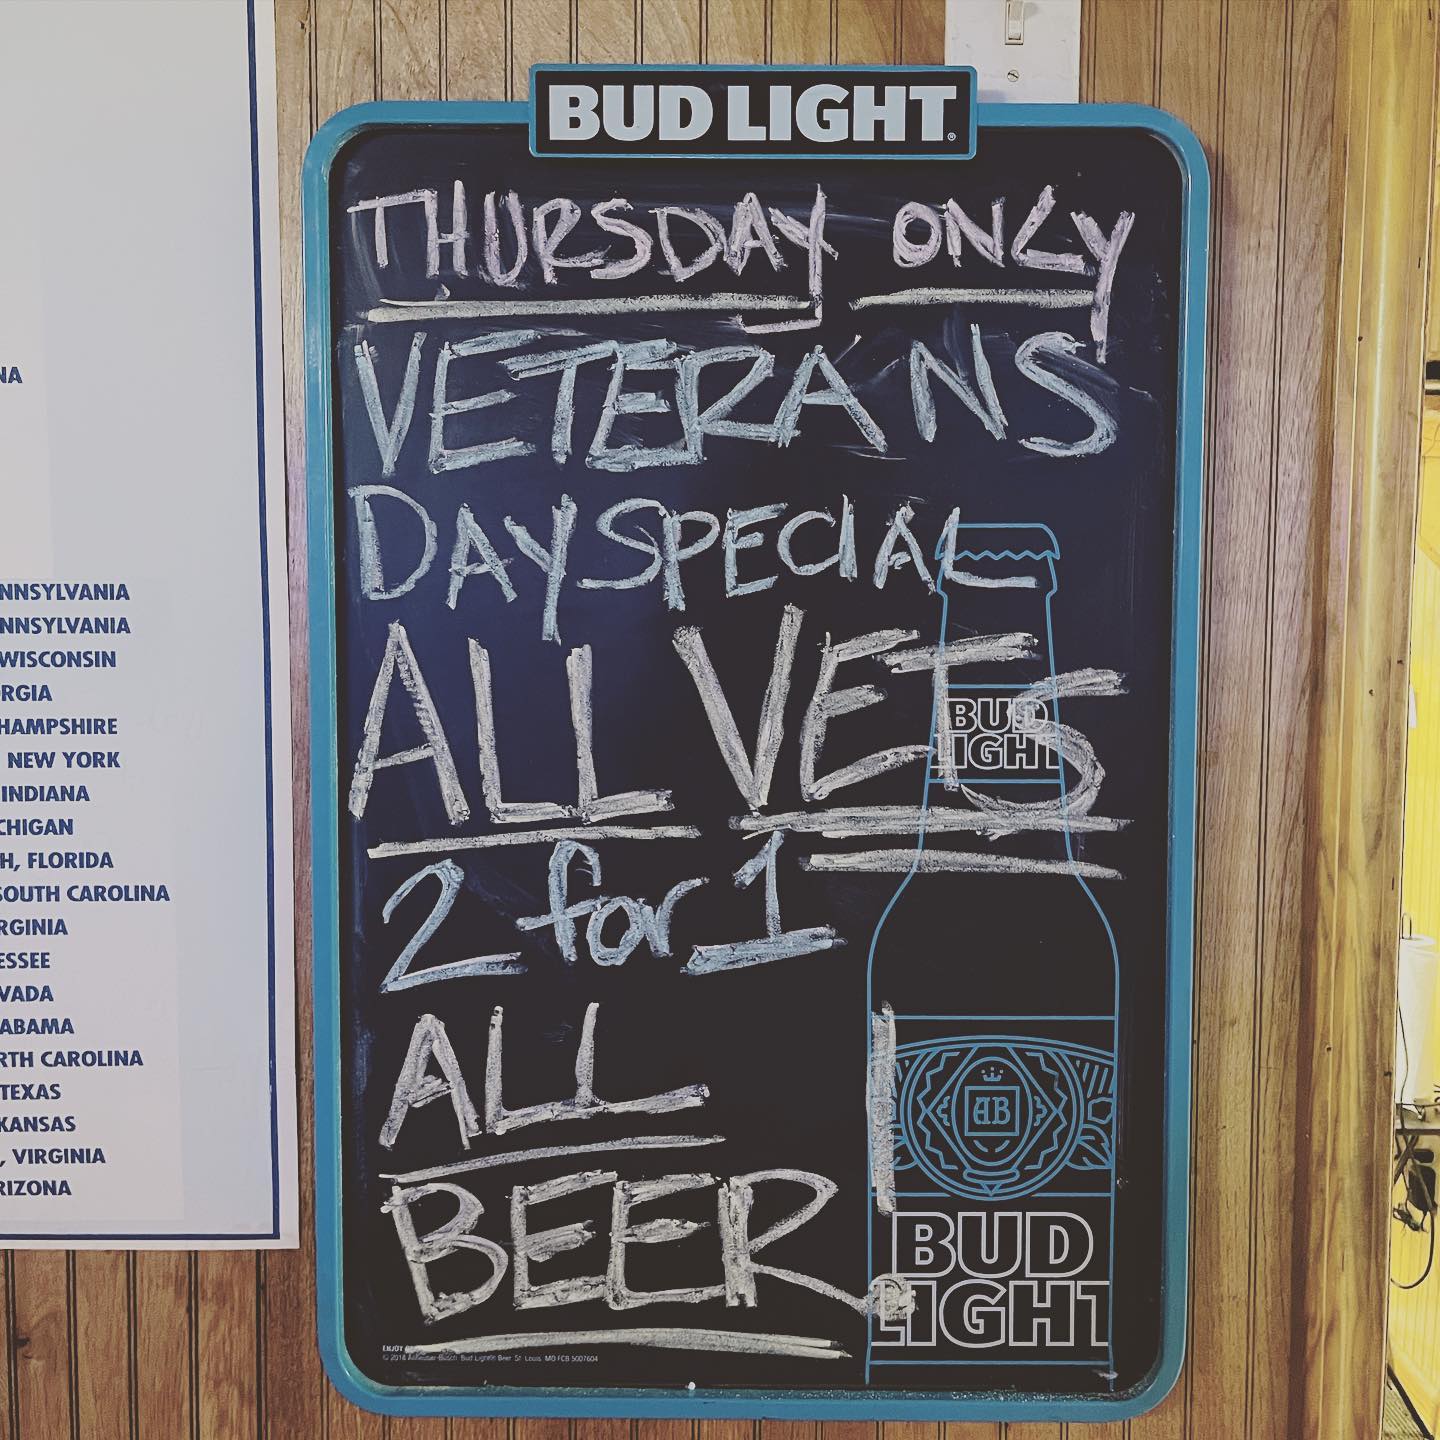 BUD LIGHT®
THURSDAY ONLY
VETERANS
DAY SPECIAL
ALL VETS
2 for 1
ALL
BEER!
BUD
LIGHT
AB
BUD
LIGHT
© 2018 Anheuser-Busch, Bud Light® Beer St. Louis, MO
NA
NNSYLVANIA
NNSYLVANIA
WISCONSIN
RGIA
HAMPSHIRE
NEW YORK
INDIANA
CHIGAN
H, FLORIDA
SOUTH CAROLINA
RGINIA
ESSEE
VADA
ABAMA
RTH CAROLINA
TEXAS
KANSAS
, VIRGINIA
RIZONA